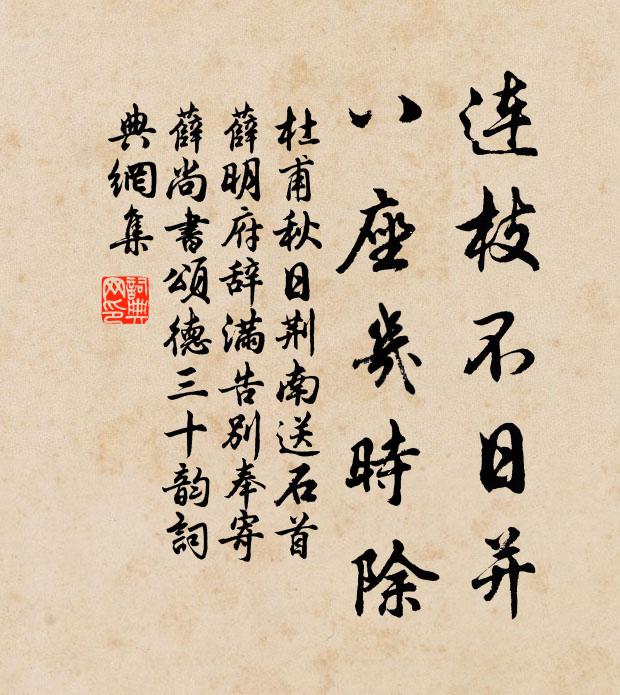 连枝不日并
八座几時除
杜甫秋日荆南送石首
薛明府辞满告别奉寄
薛尚書頌德三十韵詞
典網集
詞典
网印